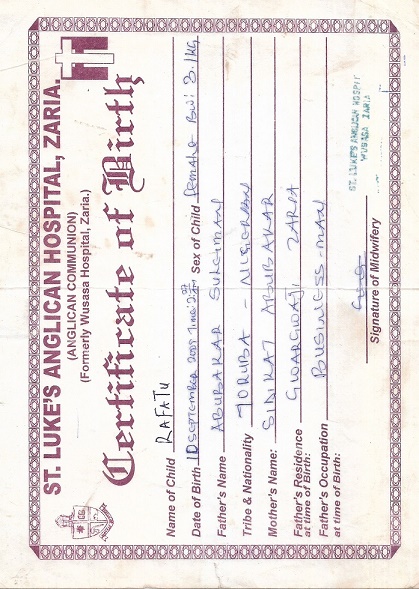 ST. LUKE'S ANGLICAN HOSPITAL, ZARIA.
(ANGLICAN COMMUNION)
(Formerly Wusasa Hospital, Zaria.)
Certificate of Birth
Name of Child RAFATU
Date of Birth 10 SEPTEMBER 2009 Time: Sex of Child female BW: 3.1kg
Father's Name ABUBAKAR SULEIMAN
Tribe & Nationality YORUBA - NIGERIAN
Mother's Name: SIDIKAT ABUBAKAR
Father's Residence at time of Birth: GWARGWAJI ZARIA
Father's Occupation at time of Birth: BUSINESS-MAN
Signature of Midwifery
ST. LUKE'S ANGLICAN HOSPIT
WUSASA ZARIA